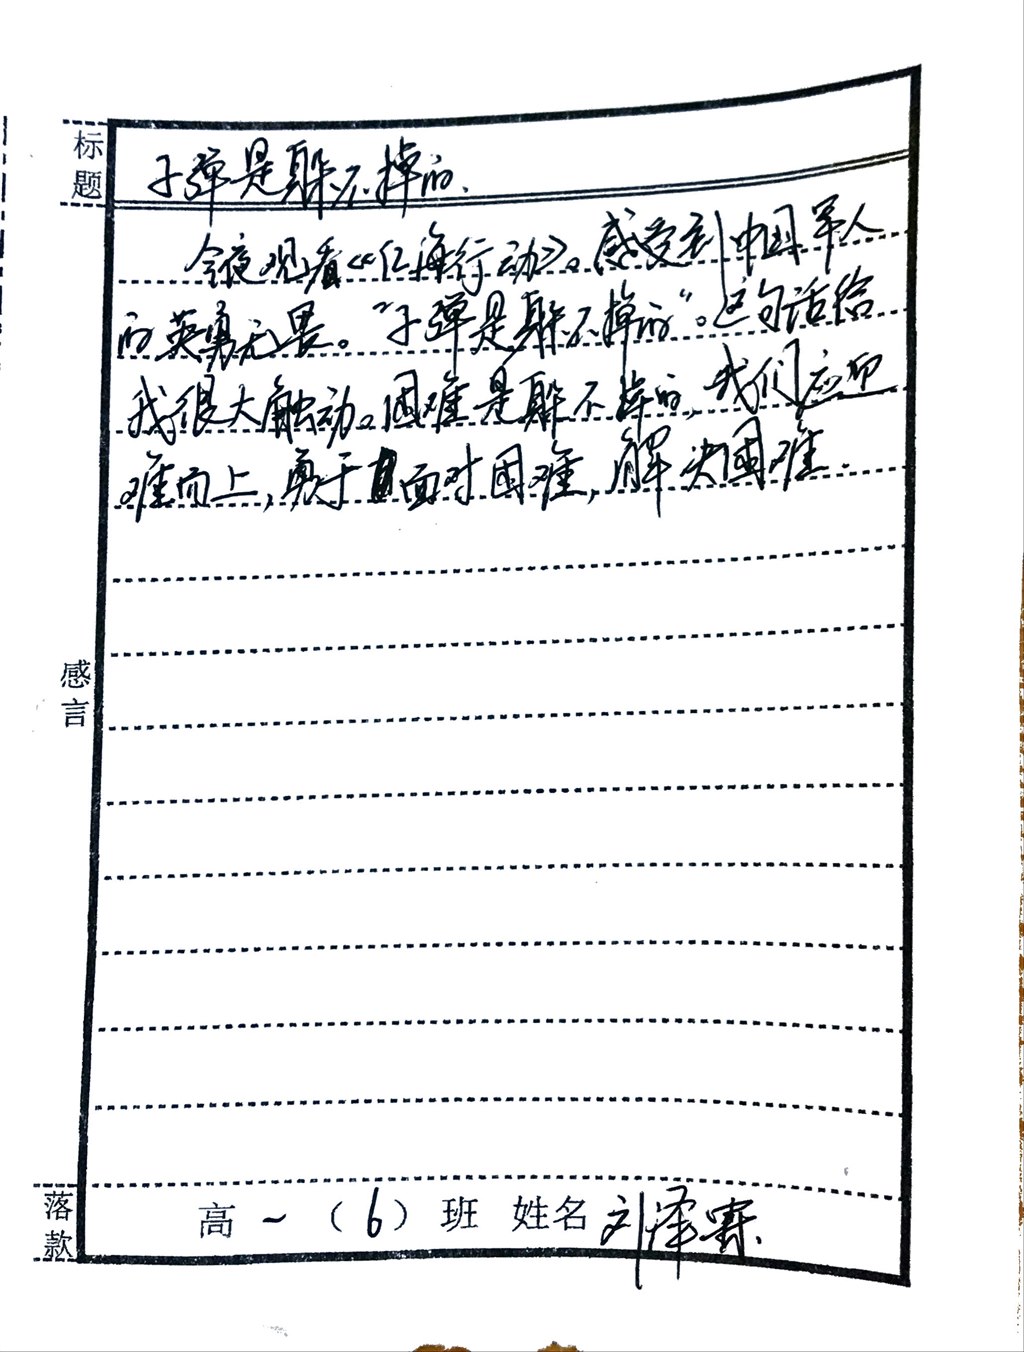 标题
子弹是躲不掉的.
今夜观看《红海行动》。感受到中国军人
的英勇无畏。“子弹是躲不掉的”。这句话给
我很大触动。困难是躲不掉的,我们应迎
难而上,勇于面对困难,解决困难.
感言
落款
高一（6）班 姓名 刘泽赛.